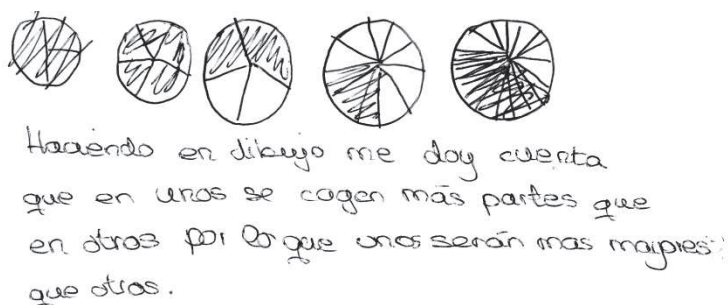 Haciendo en dibujo me doy cuenta
que en unos se cogen más partes que
en otros por lo que unos serán mas mayores
que otros.